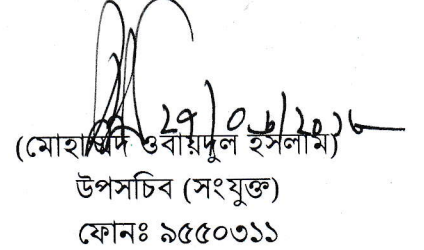 ২৭/০৬/২০১৮
(মোহাম্মদ ওবায়দুল ইসলাম)
উপসচিব (সংযুক্ত)
ফোনঃ ৯৫৫০৩১১